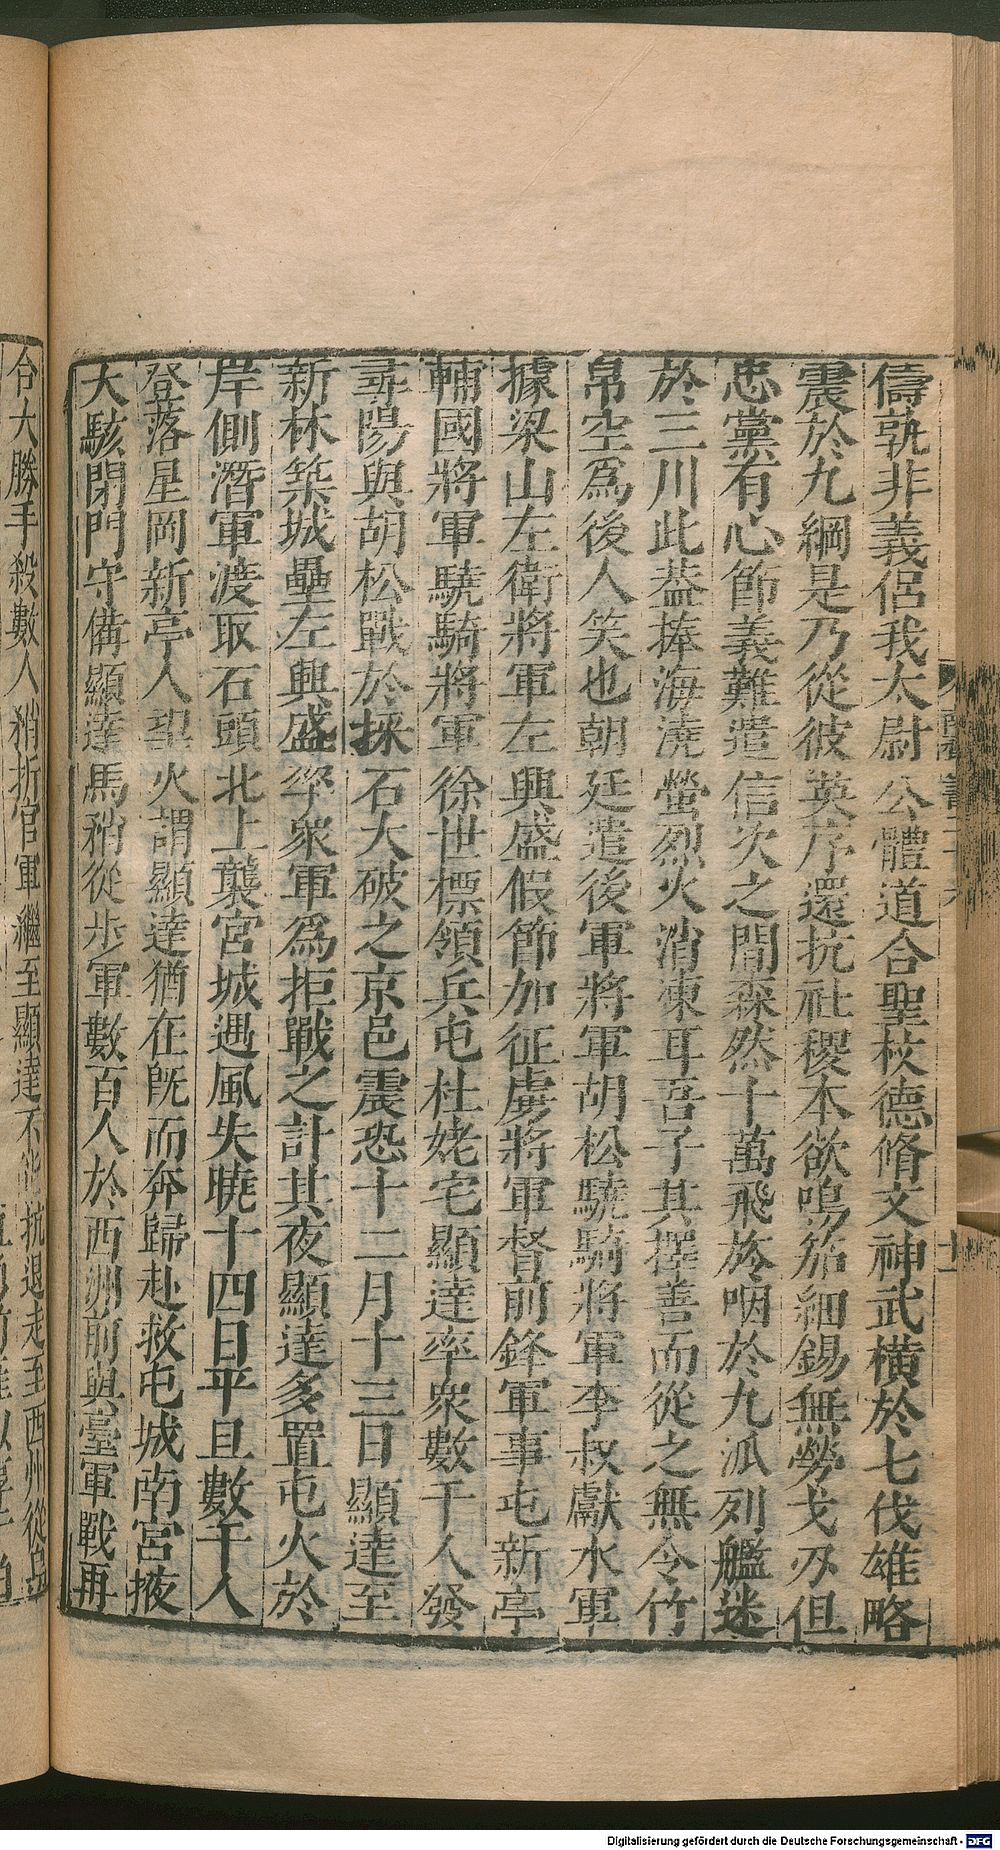 儔孰非義侶我太尉公體道合聖杖德脩文神武橫於七伐雄略
震於九綱是乃從彼英序還抗社稷本欲鳴笳細錫無勞戈刃但
忠黨有心節義難遣信次之間森然十萬飛旍咽於九派列艦迷
於三川此蓋捧海澆螢烈火消凍耳吾子其擇善而從之無令竹
帛空爲後人笑也朝廷遣後軍將軍胡松驍騎將軍李叔獻水軍
據梁山左衛將軍左興盛假節加征虜將軍督前鋒軍事屯新亭
輔國將軍驍騎將軍徐世標領兵屯杜姥宅顯達率衆數千人發
尋陽與胡松戰於採石大破之京邑震恐十二月十三日顯達至
新林築城壘左興盛率衆軍爲拒戰之計其夜顯達多置屯火於
岸側潛軍渡取石頭北上襲宮城遇風失曉十四日平旦數千人
登落星岡新亭人望火謂顯達猶在旣而奔歸赴救屯城南宮掖
大駭閉門守備顯達馬矟從步軍數百人於西洲前與臺軍戰再
合大勝手殺數人矟折官軍繼至顯達不能抗退走至西州後烏
Digitalisierung gefördert durch die Deutsche Forschungsgemeinschaft - DFG